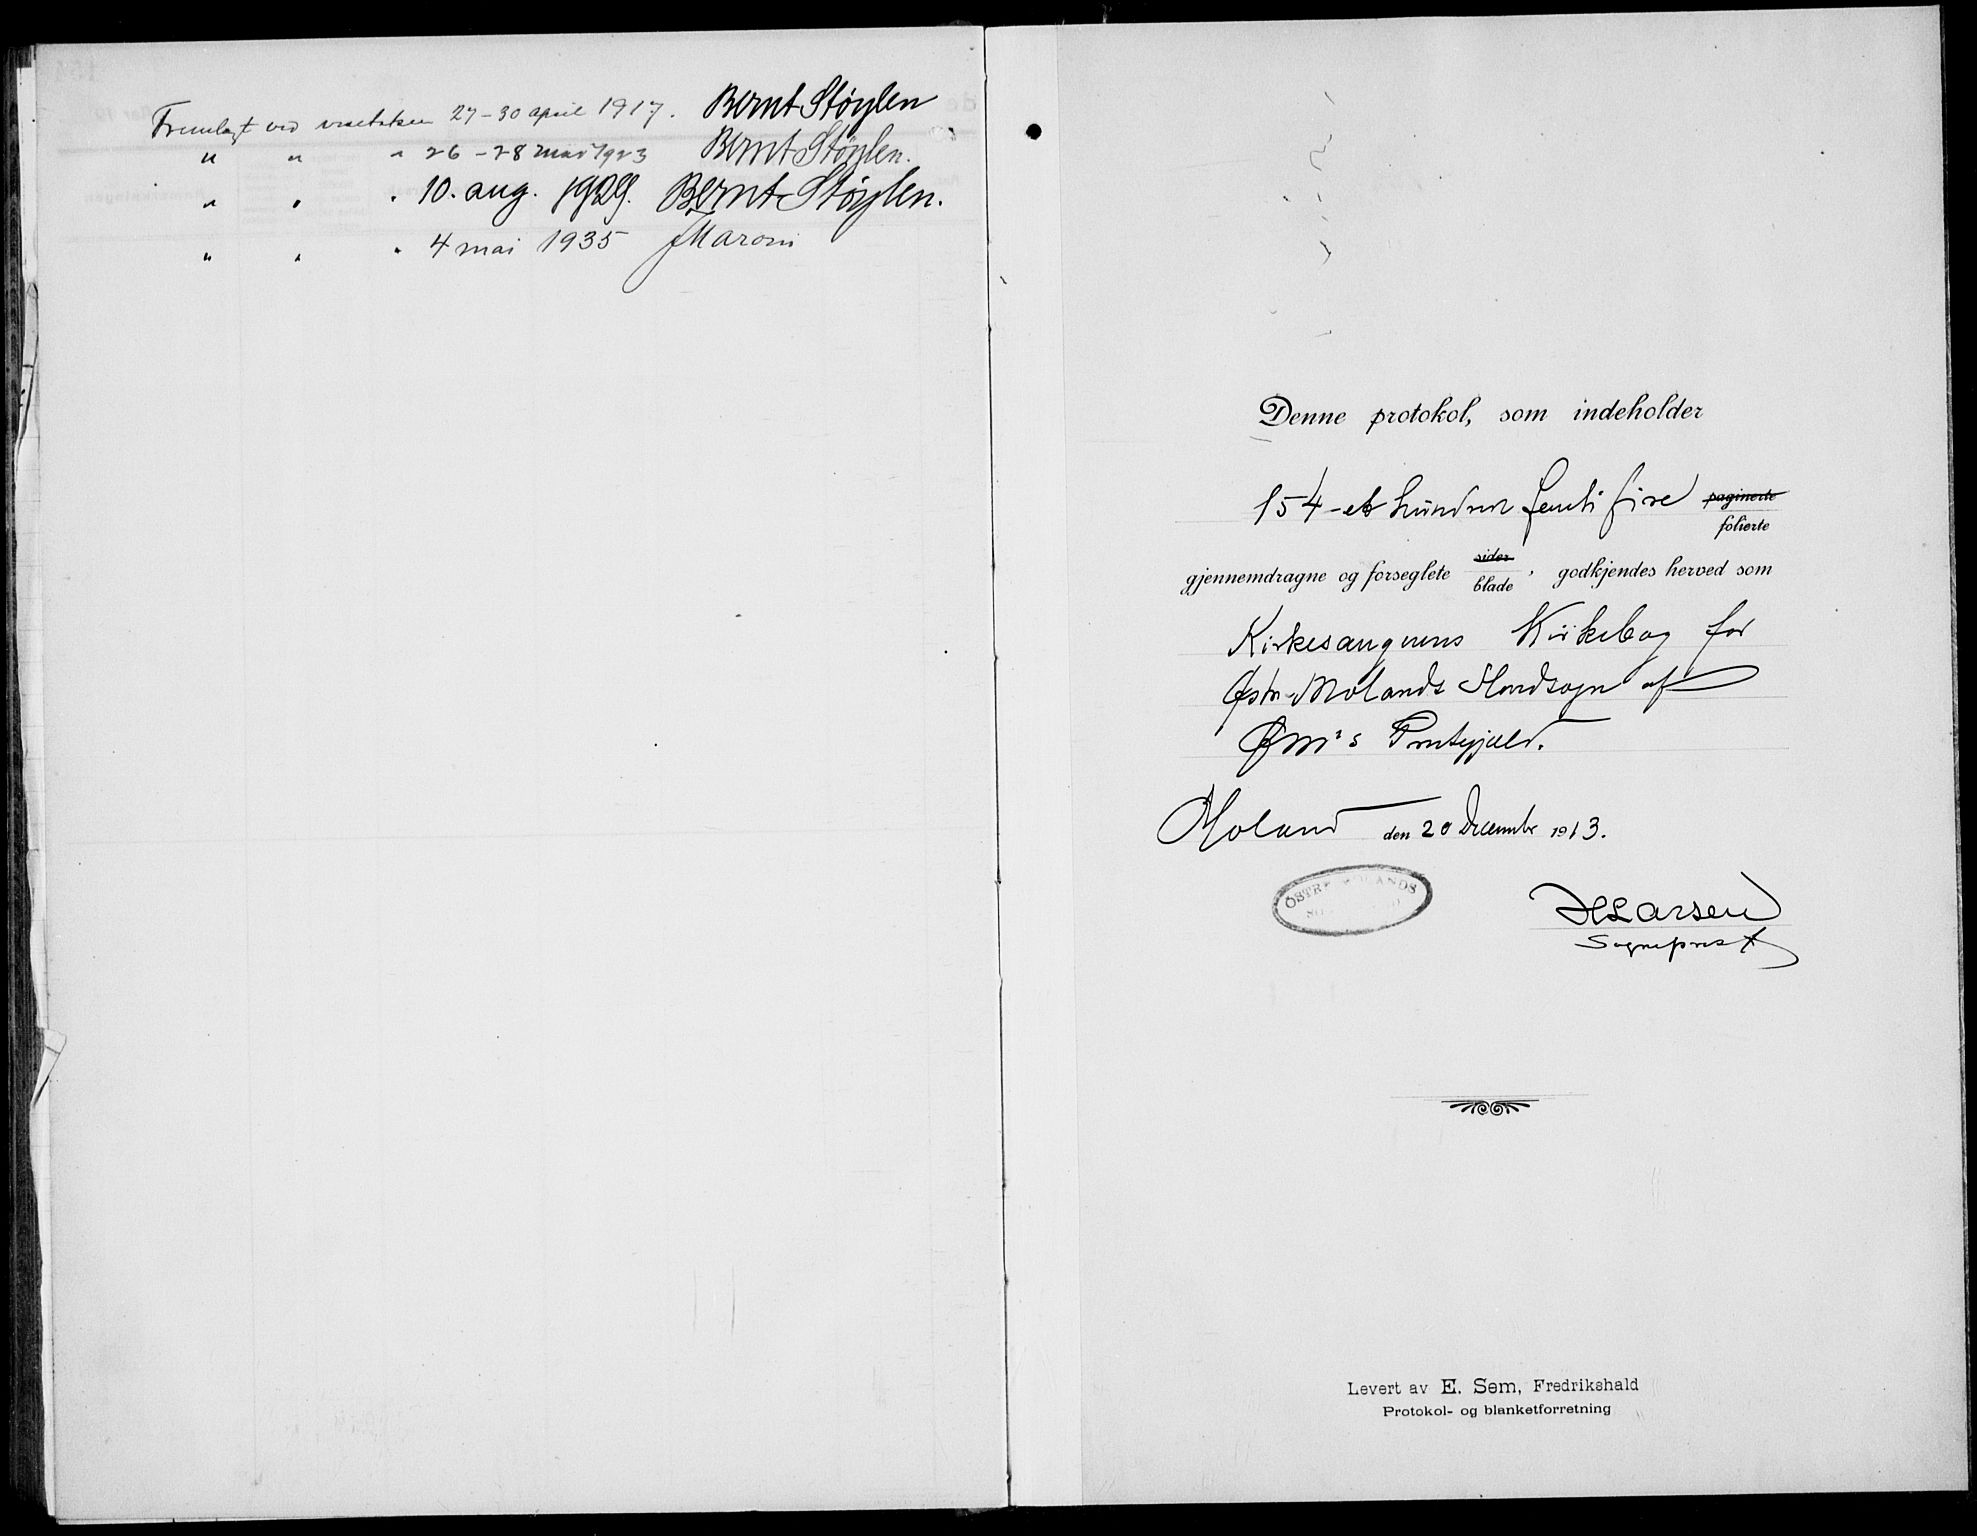 Fremlagt ved visitatsen 27-30 april 1917. Bernt Støylen
" " " 26-28 mai 1923 Bernt Støylen.
" " " 10. aug. 1929. Bernt Støylen.
" " " 4 mai 1935 JMaroni
Denne protokol, som indeholder
154 - et hundrede femti fire paginerte
folierte
gjennemdragne og forseglete sider
blade, godkjendes herved som
Kirkesangerens Kirkebog for
Østre-Molands Hovedsogn af
ØM's Prestegjæld.
Moland den 20 December 1913.
ØSTRE MOLANDS
HLarsen
Sogneprest
Levert av E. Sem, Fredrikshald
Protokol- og blanketforretning